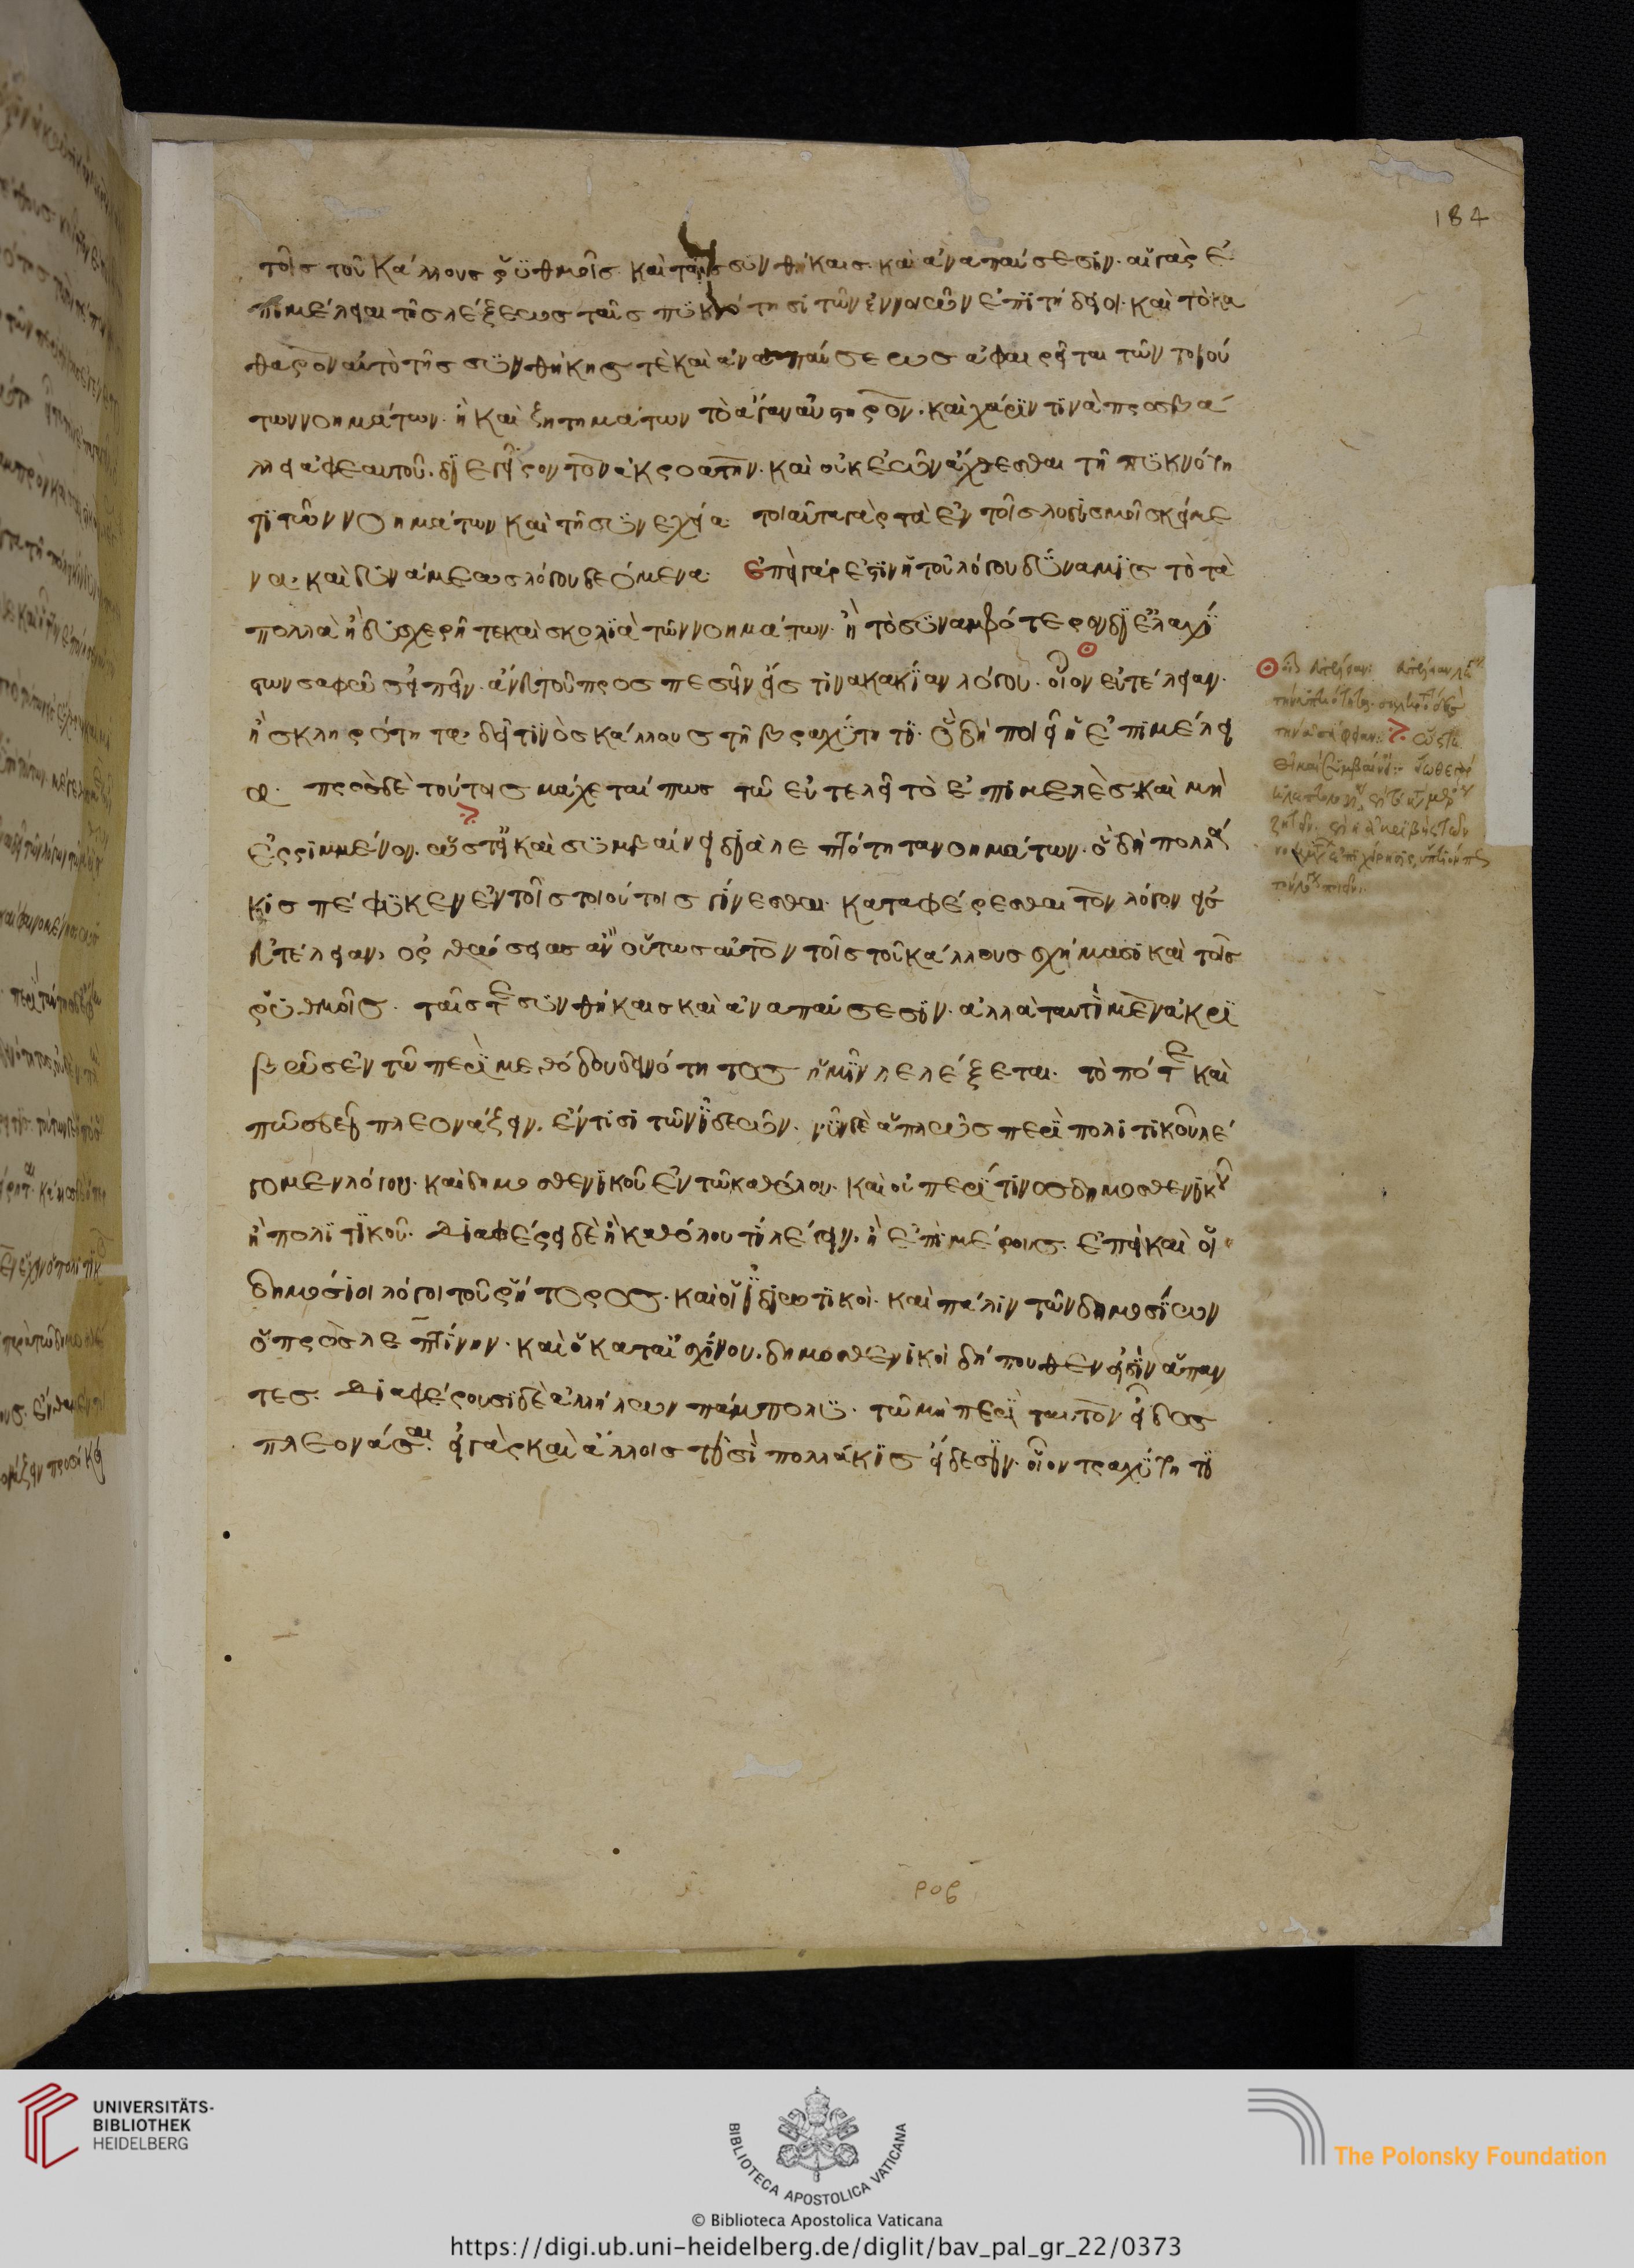 τοῖς τοῦ κάλλους ῥυθμοῖς· καὶ ταῖς συνθήκαις· καὶ ἀναπαύσεσιν· αἱ γὰρ ἐ
πιμέλειαι τῆς λέξεως ταῖς πυκνότησι τῶν ἐννοιῶν ἐπιτήδειοι· καὶ τὸ κα
θαρὸν αὐτὸ τῆς συνθήκης τὲ καὶ ἀναπαύσεως ἀφαιρεῖται τῶν τοιού
των νοημάτων· ἢ καὶ ζητημάτων τὸ ἄγαν αὐστηρὸν· καὶ χάριν τινὰ προσβά
λλει ἀφεαυτοῦ· διεγεῖρον τὸν ἀκροατὴν· καὶ οὐκ ἐῶν ἄχθεσθαι τῆ πυκνότη
τι τῶν νοημάτων καὶ τῆ συνεχεία· τοιαῦτα γὰρ τὰ ἐν τοῖς λογισμοῖς κείμε
να· καὶ δυνάμεως λόγου δεόμενα· ἐπεὶ γάρ ἐστιν ἡ τοῦ λόγου δύναμις τὸ τὰ
πολλὰ ἢ δυσχερῆ τε καὶ σκολιὰ τῶν νοημάτων· ἢ τὸ συναμφότερον δι ἐλαχί
στων σαφῶς εἰπεῖν· ἄνευ τοῦ προσπεσεῖν εἴς τινα κακίαν λόγου· οἷον εὐτέλειαν·
ἢ σκληρότητα· δεῖ τινὸς κάλλους τῆ βραχύτητι· ὃ δὴ ποιεῖ ἡ ἐπιμέλει
α· πρὸς δὲ τούτοις μάχεταί πως τῶ εὐτελεῖ τὸ ἐπιμελὲς καὶ μὴ
ἐρριμμένον· ὥστ εἰ καὶ συμβαίνει διὰ λεπτότητα νοημάτων· ὃ δὴ πολλά
κις πέφυκεν ἐν τοῖς τοιούτοις γίνεσθαι· καταφέρεσθαι τὸν λόγον εἰς
εὐτέλειαν, ὀρθώσειας ἂν οὕτως αὐτὸν τοῖς τοῦ κάλλους σχήμασι καὶ τοῖς
ῥυθμοῖς· ταῖς τε συνθήκαις καὶ ἀναπαύσεσιν· ἀλλὰ ταυτὶ μὲν ἀκρι
βῶς ἐν τῶ περὶ μεθόδου δεινότητος ἡμῖν λελέξεται· τὸ πότε καὶ
πῶς δεῖ πλεονάζειν· ἔν τισι τῶν ἰδεῶν· νῦν δὲ ἁπλῶς περὶ πολιτικοῦ λέ
γομεν λόγου· καὶ δημοσθενικοῦ ἐν τῶ καθόλου· καὶ οὐ περί τινος δημοσθενικοῦ
ἢ πολιτικοῦ· διαφέρει δὲ ἢ καθόλου τι λέγειν· ἢ ἐπὶ μέρους· ἐπεὶ καὶ οἱ
δημόσιοι λόγοι τοῦ ῥήτορος· καὶ οἱ ἰδιωτικοὶ· καὶ πάλιν τῶν δημοσίων
ὁ πρὸς λεπτίνην· καὶ ὁ κατ αἰσχίνου· δημοσθενικοὶ δήπουθεν εἰσὶν ἅπαν
τες· διαφέρουσι δὲ ἀλλήλων πάμπολυ· τῶ μὴ περὶ ταυτὸν εἶδος
πλεονάσαι· εἰ γὰρ καὶ ἄλλοις τισὶ πολλάκις εἴδεσιν· οἷον τραχύτητι
184
ροβ
UNIVERSITÄTS-
BIBLIOTHEK
HEIDELBERG
BIBLIOTECA APOSTOLICA VATICANA
The Polonsky Foundation
© Biblioteca Apostolica Vaticana
https://digi.ub.uni-heidelberg.de/diglit/bav_pal_gr_22/0373